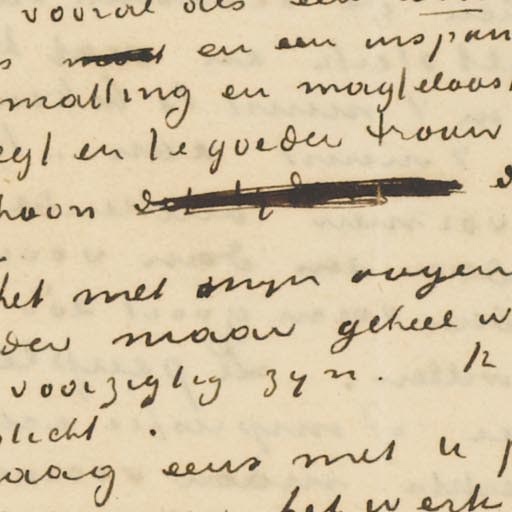 vooral als een
en een inspan
matting en magteloos
egt en te goeder trouw
hoon
het met mijn oogen
der maar geheel w
voorzigtig zyn. Ik
plicht.
aag eens met u
het werk